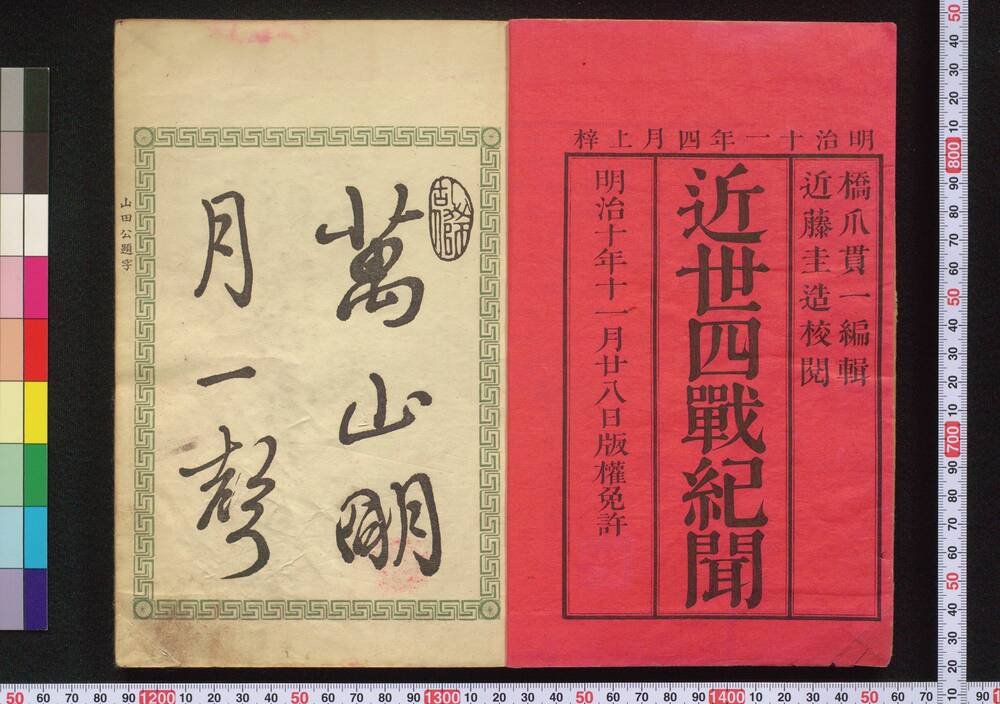 明治十一年四月上梓
橋爪貫一編輯
近藤圭造校閲
近世四戰紀聞
明治十年十一月廿八日版權免許
萬山明
月一聲
山田公題字